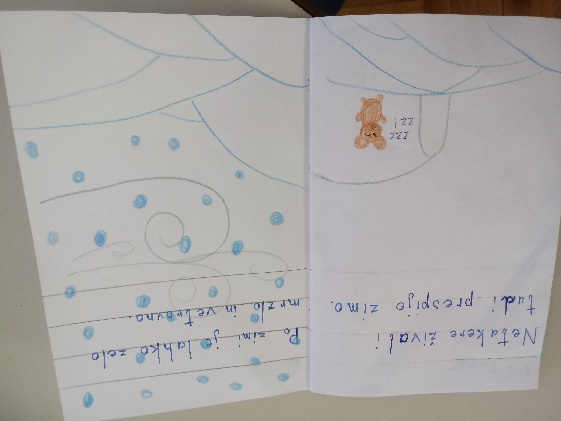 Netakere živali
tudi prespijo zimo.
zzz
zz!
Po zimi je lahko zelo
mrzlo in vetrovno.